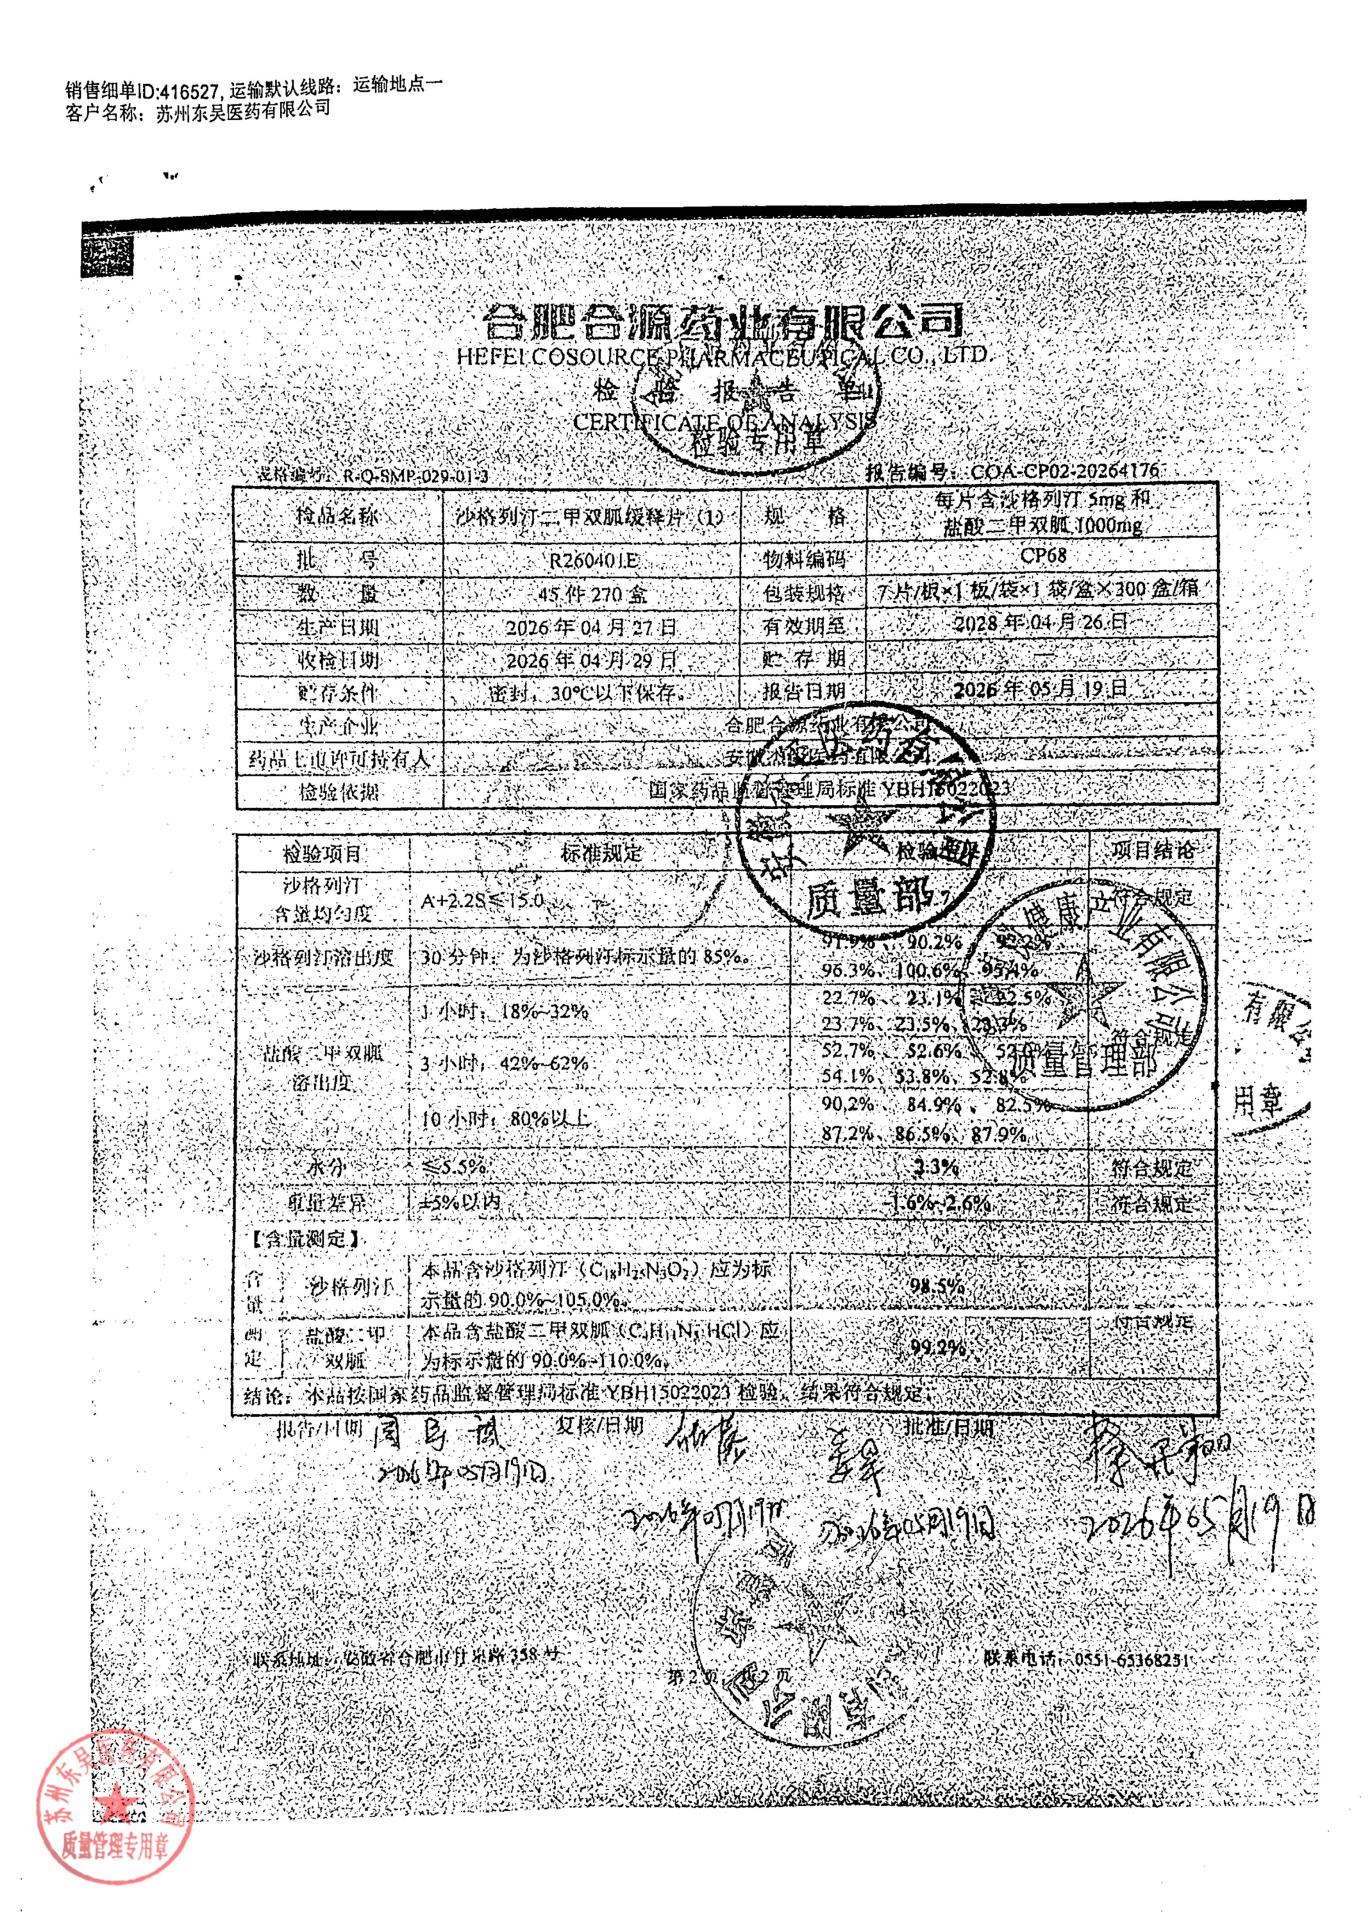 销售细单ID:416527, 运输默认线路：运输地点一
客户名称：苏州东吴医药有限公司
合肥合源药业有限公司
HEFEI COSOURCE PHARMACEUTICAL CO., LTD.
检 验 报 告 单
CERTIFICATE OF ANALYSIS
检验专用章
表格编号：R-Q-SMP-029-01-3 报告编号：COA-CP02-20264176
检品名称 沙格列汀二甲双胍缓释片（I） 规 格 每片含沙格列汀 5mg 和
盐酸二甲双胍 1000mg
批 号 R260401E 物料编码 CP68
数 量 45 件 270 盒 包装规格 7 片/板×1 板/袋×1 袋/盒×300 盒/箱
生产日期 2026 年 04 月 27 日 有效期至 2028 年 04 月 26 日
收检日期 2026 年 04 月 29 日 贮 存 期 —
贮存条件 密封，30℃以下保存。 报告日期 2026 年 05 月 19 日
生产企业 合肥合源药业有限公司
药品上市许可持有人 安徽 医药有限公司
检验依据 国家药品监督管理局标准 YBH15022023
检验项目 标准规定 检验结果 项目结论
沙格列汀
含量均匀度 A+2.2S≤15.0 符合规定
质量部
沙格列汀溶出度 30 分钟：为沙格列汀标示量的 85%。 91.9%、 90.2%、 92.2%
96.3%、100.6%、95.4%
盐酸二甲双胍
溶出度 1 小时：18%~32% 22.7%、 23.1%、 22.5%
23.7%、23.5%、23.3%
符合规定
3 小时：42%~62% 52.7%、 52.6%、
54.1%、53.8%、52.8%
质量管理部
10 小时：80%以上 90.2%、 84.9%、 82.5%
87.2%、86.5%、87.9%
健康产业有限公司
有限公司
用章
水分 ≤5.5% 3.3% 符合规定
重量差异 ±5%以内 -1.6%~2.6% 符合规定
【含量测定】
含量测定 沙格列汀 本品含沙格列汀（C₁₈H₂₅N₃O₂）应为标
示量的 90.0%~105.0%。 98.5%
盐酸二甲
双胍 本品含盐酸二甲双胍（C₄H₁₁N₅·HCl）应
为标示量的 90.0%~110.0%。 99.2% 符合规定
结论：本品按国家药品监督管理局标准 YBH15022023 检验，结果符合规定。
报告/日期 复核/日期 批准/日期
2026年05月19日
2026年05月19日 2026年05月19日 2026年05月19日
联系地址：安徽省合肥市甘泉路 358 号 联系电话：0551-65368251
第 2 页 共 2 页
苏州东吴医药有限公司
质量管理专用章